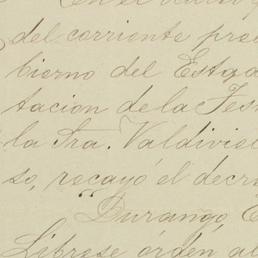 En el
del corriente pre
bierno del Estad
tacion de la Tes
la Sra. Valdivies
so, recayó el decr
"Durango, E
Líbrese órden al